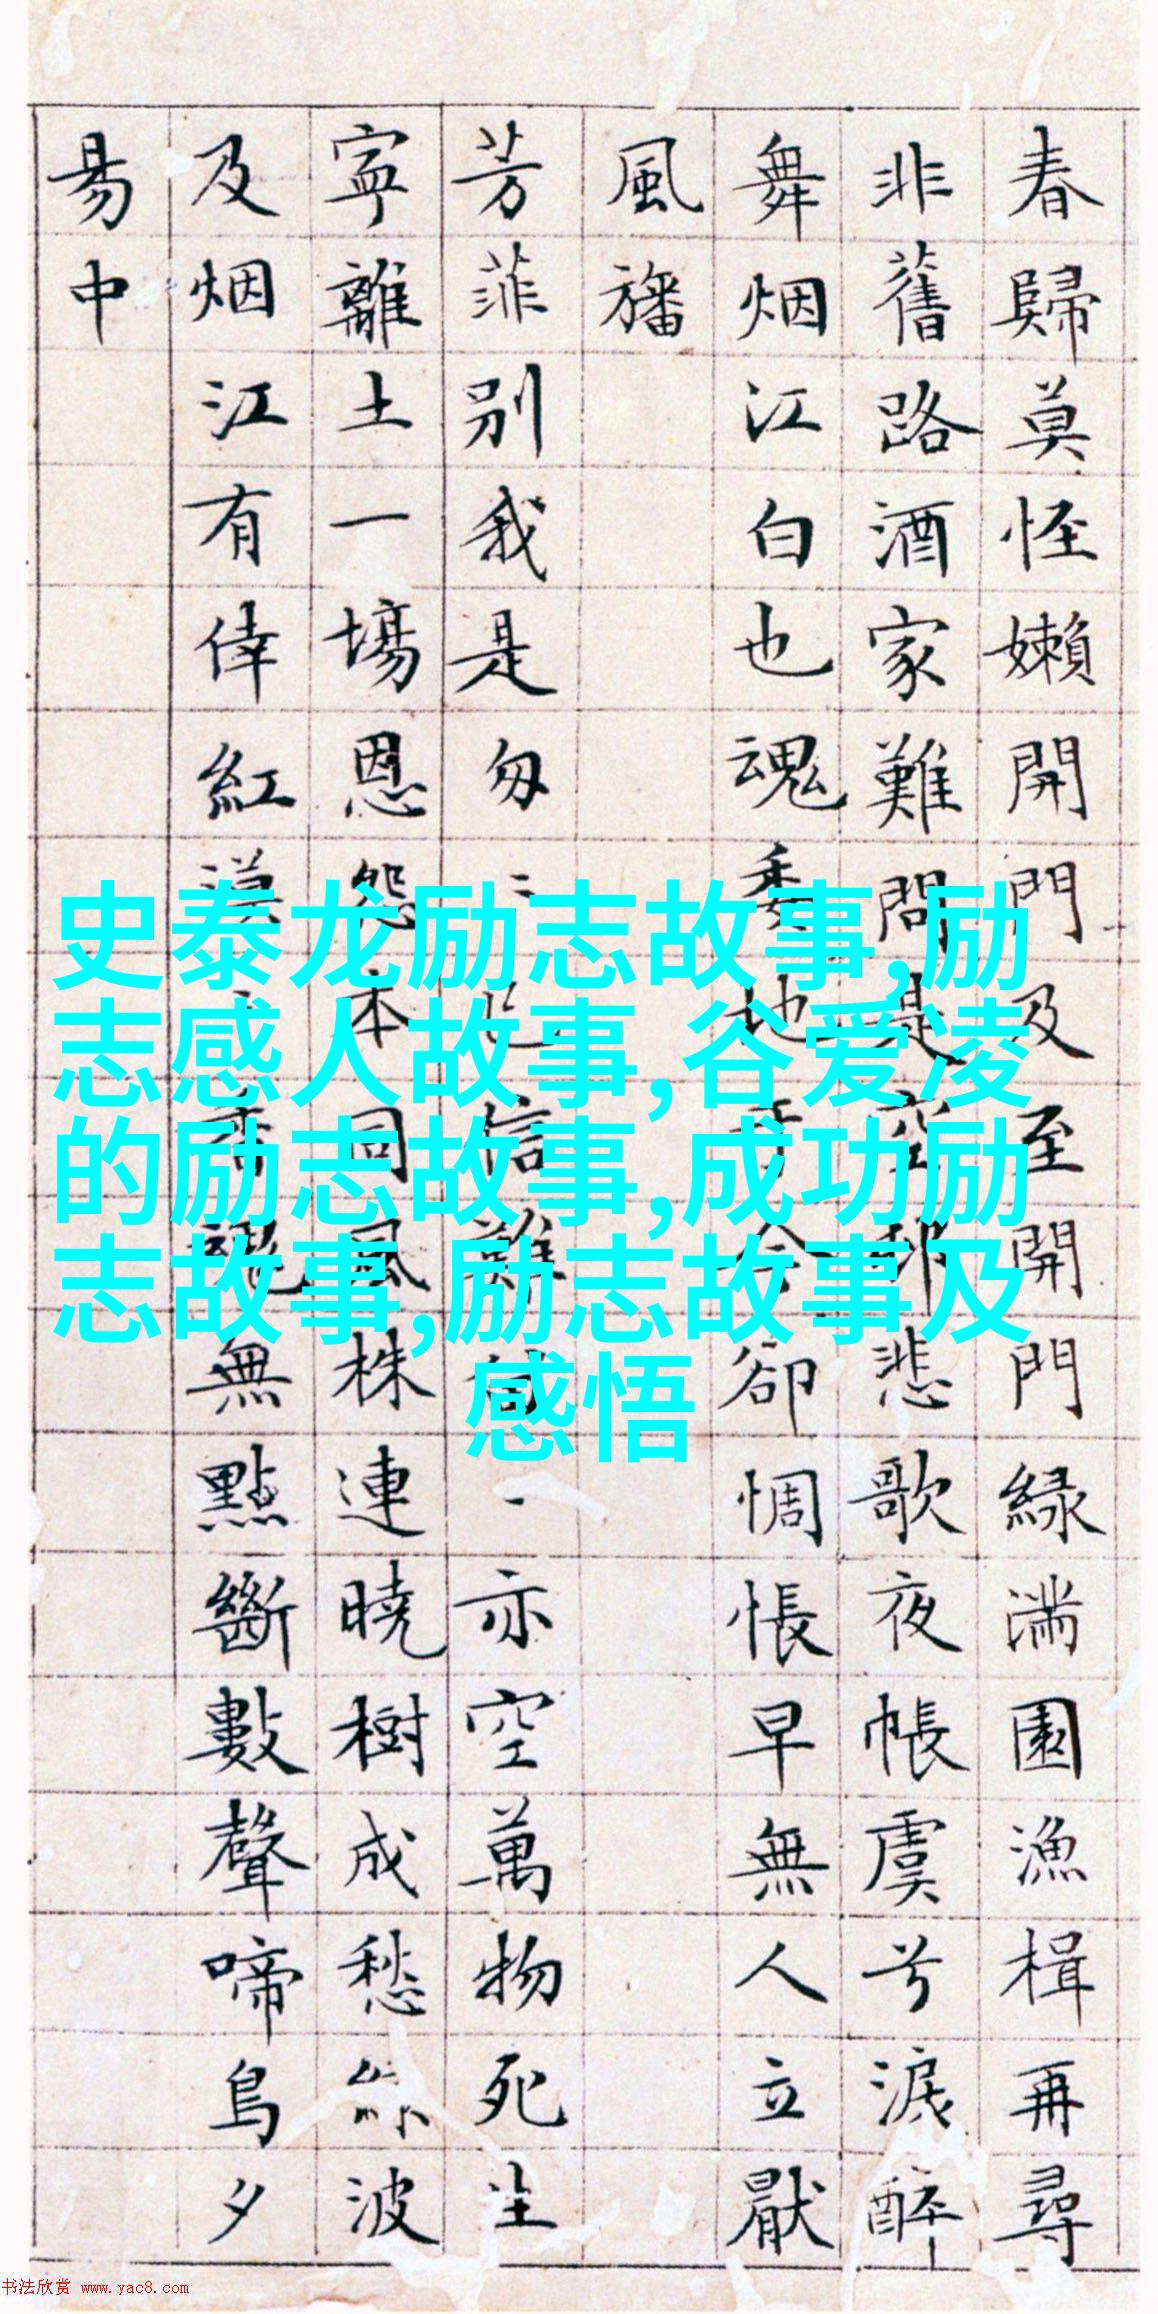 春歸莫恠嬾開門及至開門緑滿園漁楫再尋
非舊路酒家難問是空邨悲歌夜帳虞兮淚醉
舞烟江白也魂委地于今卻惆悵早無人立厭
風旛
芳菲別我是匆匆已信難留一亦空萬物死生
寧離土一場恩怨本同風株連曉樹成愁綠波
及烟江有倖紅漠香魂無點斷數聲啼鳥夕
易中
史泰龙励志故事,励
志感人故事,谷爱凌
的励志故事,成功励
志故事,励志故事及
感悟
书法欣赏 www.yac8.com